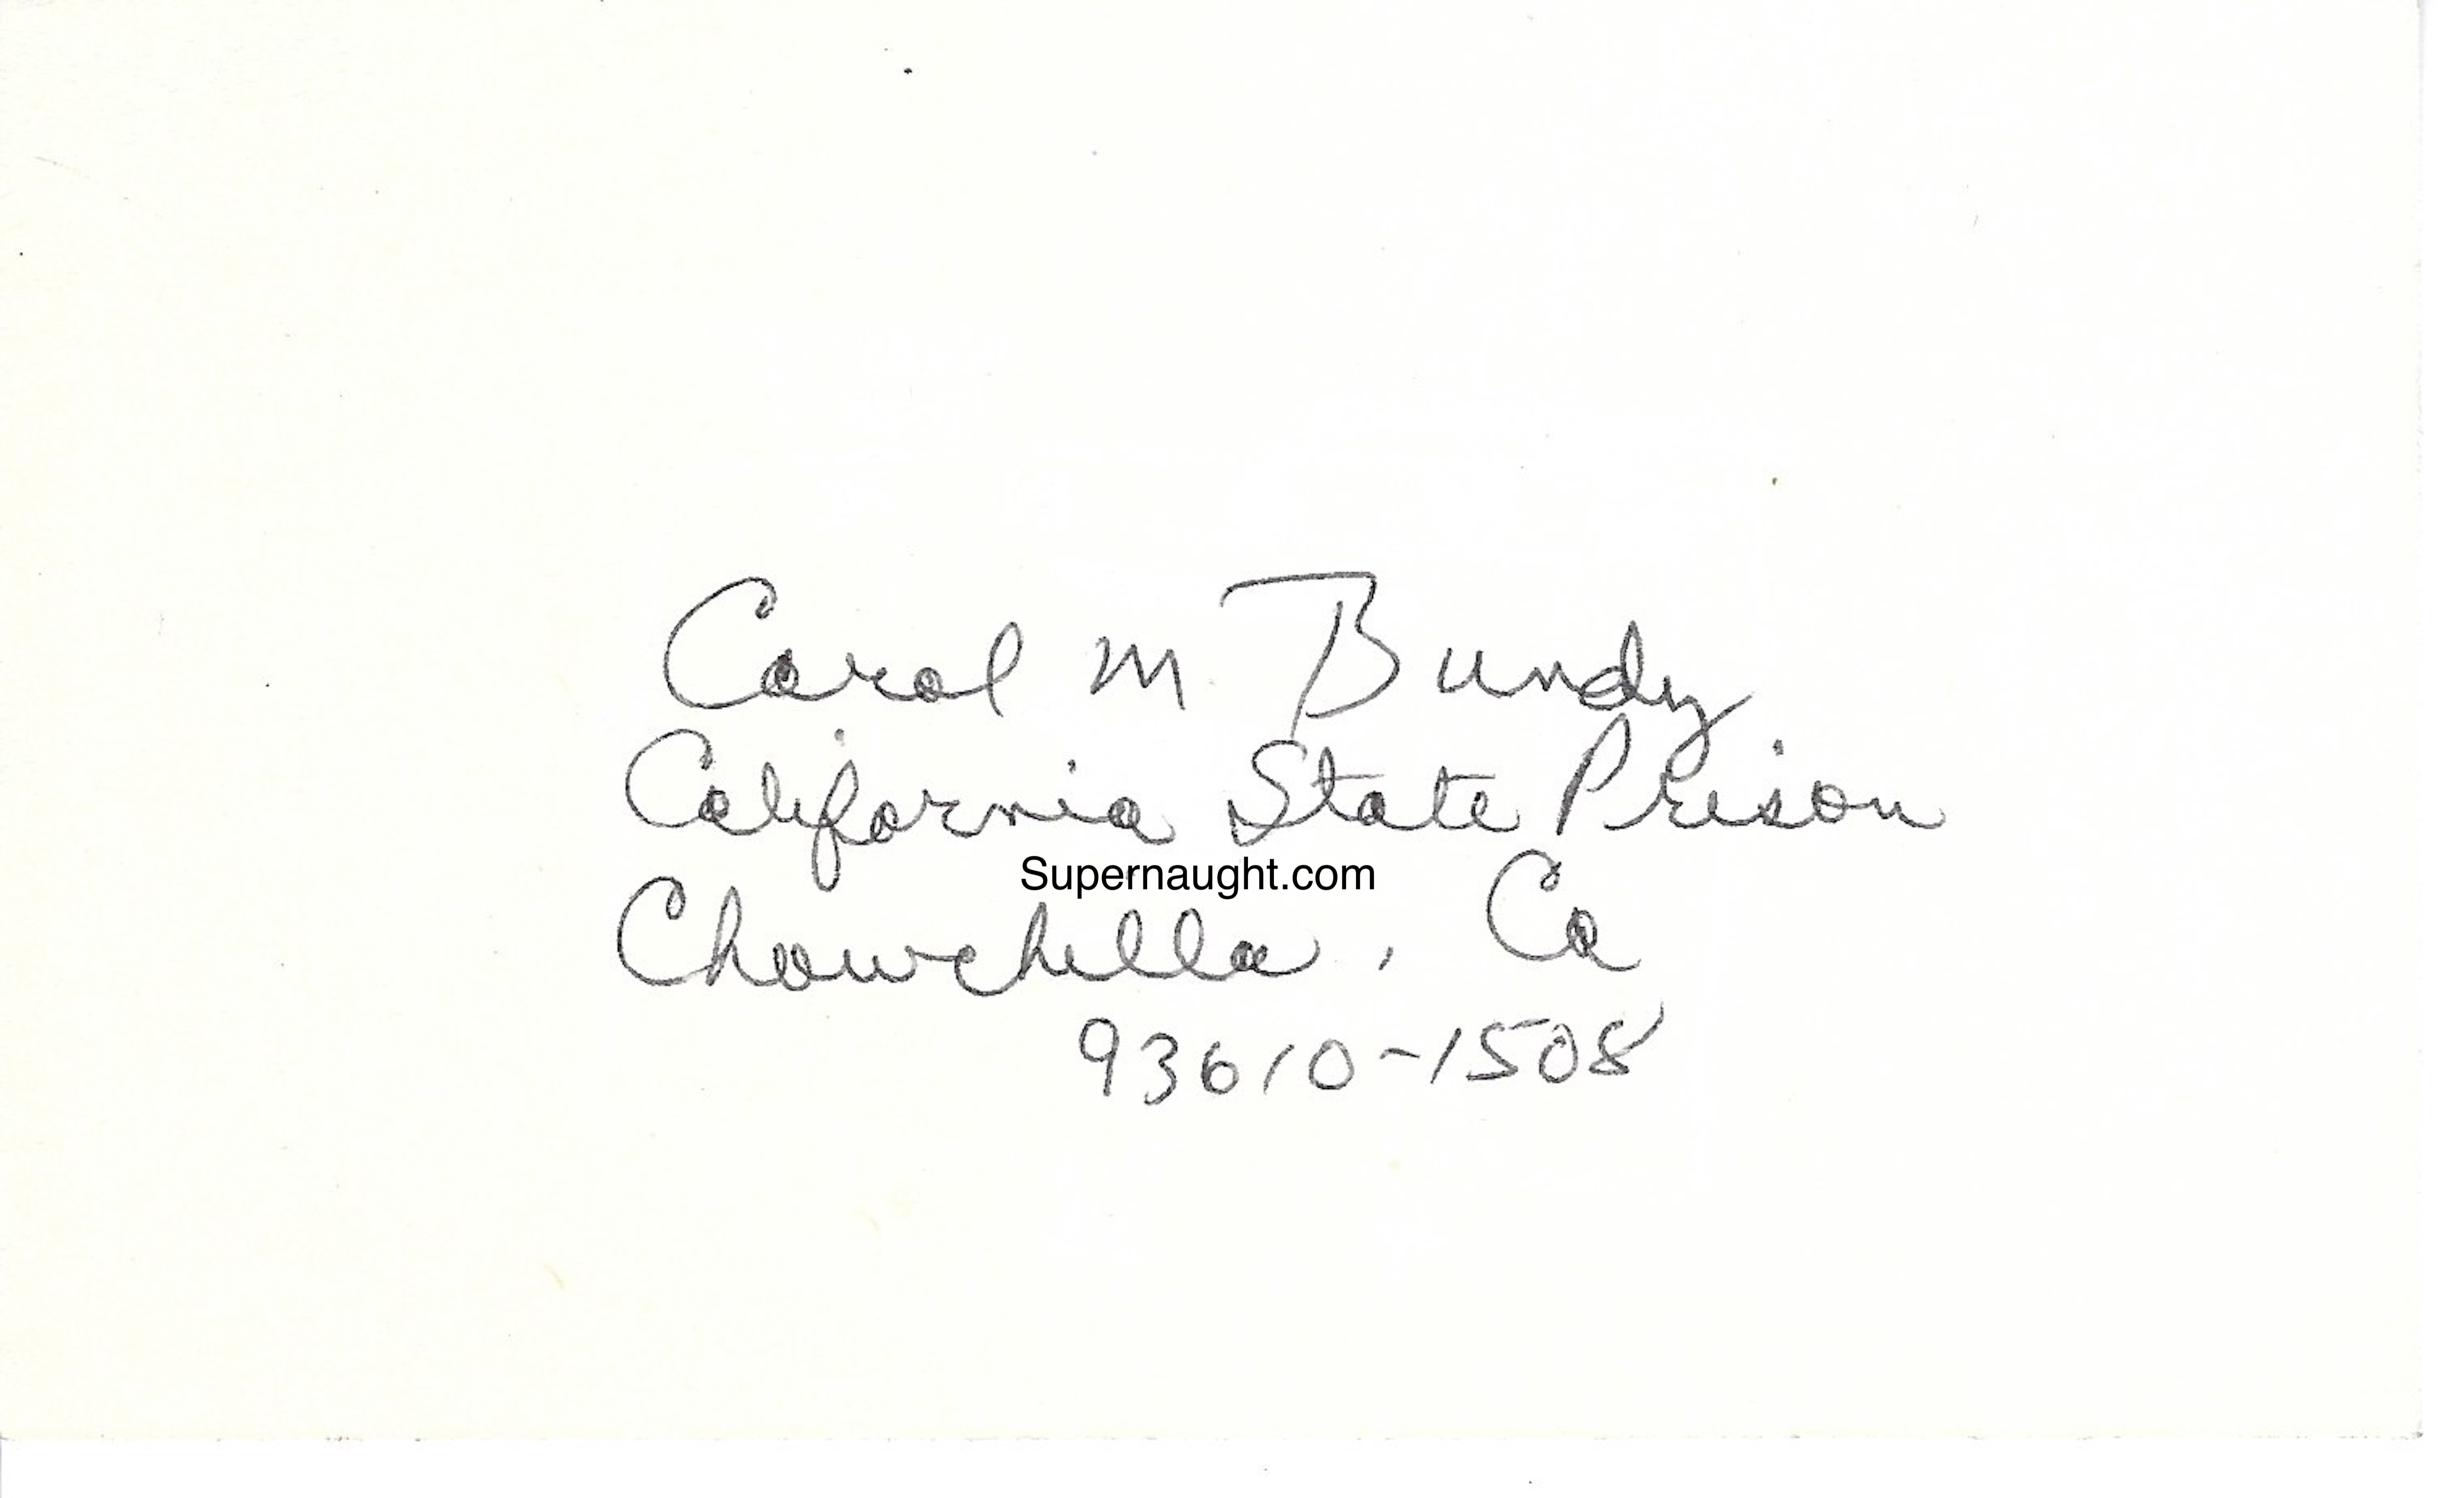 Carol M. Bundy
California State Prison
Supernaught.com
Chowchilla, Ca
93610-1508